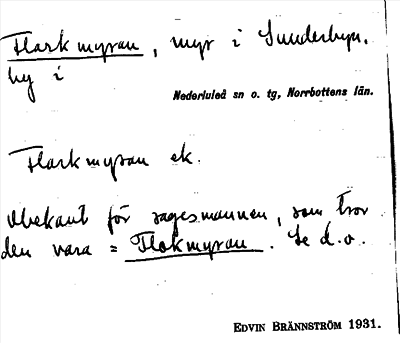 Flarkmyran, myr i Sunderbyn,
by i
Nederluleå sn o. tg, Norrbottens län.
Flarkmyran ek.
Obekant för sagesmannen, som tror
den vara = Flakmyran. Se d.o.
EDVIN BRÄNNSTRÖM 1931.